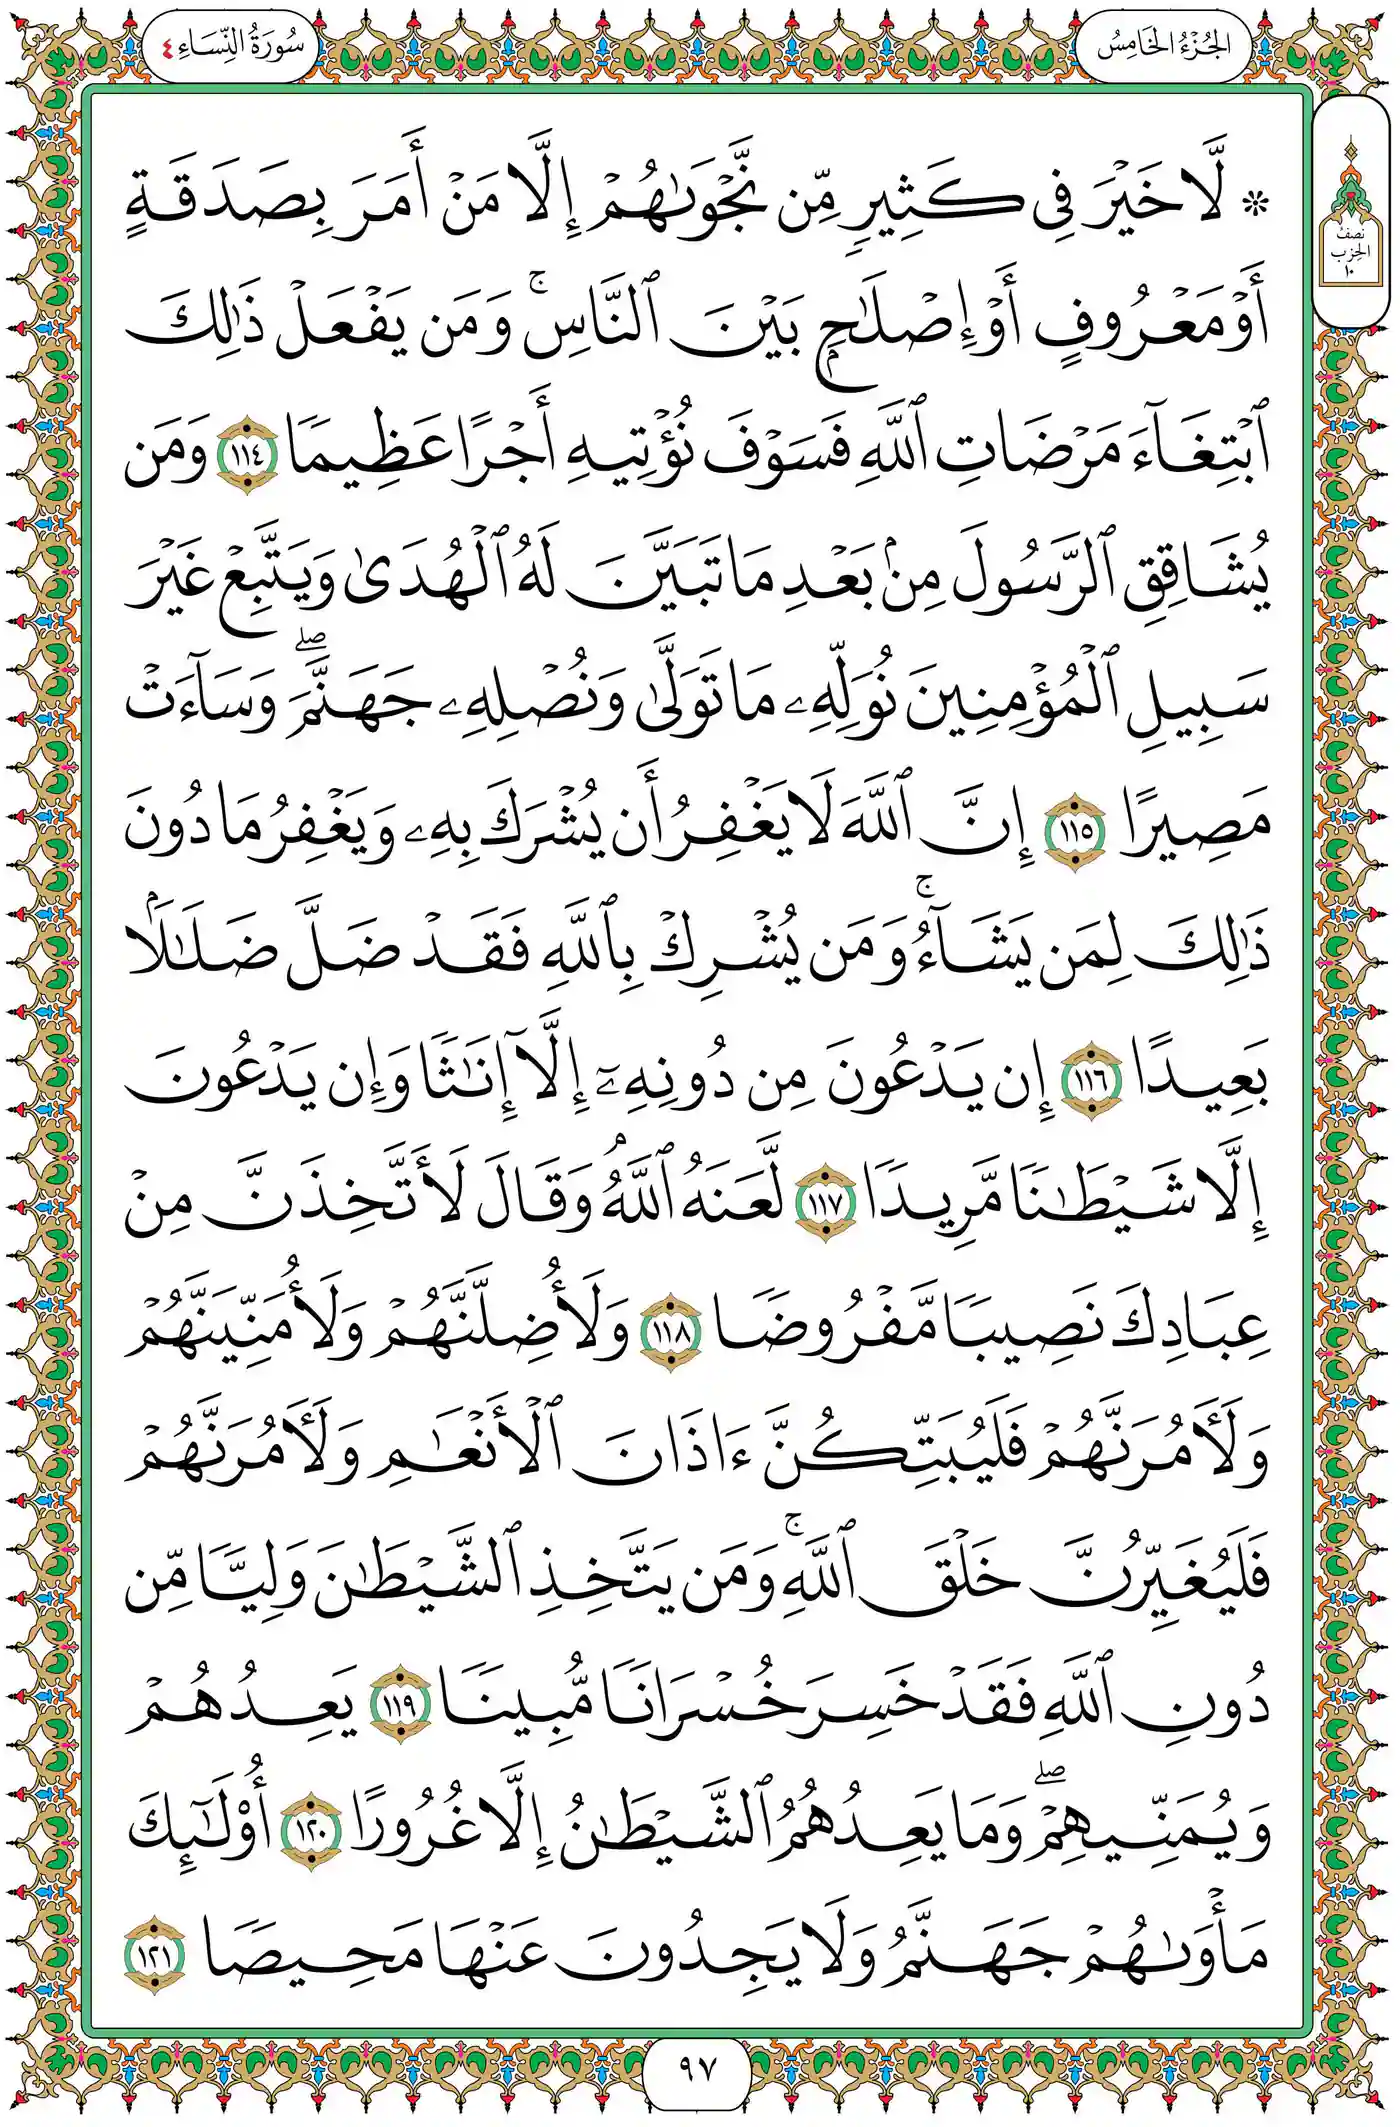 سُورَةُ النِّسَاءِ ٤
الجُزْءُ الخَامِسُ
نصفُ
الحِزب
١٠
۞ لَّا خَيْرَ فِى كَثِيرٍ مِّن نَّجْوَىٰهُمْ إِلَّا مَنْ أَمَرَ بِصَدَقَةٍ
أَوْ مَعْرُوفٍ أَوْ إِصْلَٰحٍۭ بَيْنَ ٱلنَّاسِ ۚ وَمَن يَفْعَلْ ذَٰلِكَ
ٱبْتِغَآءَ مَرْضَاتِ ٱللَّهِ فَسَوْفَ نُؤْتِيهِ أَجْرًا عَظِيمًا ١١٤ وَمَن
يُشَاقِقِ ٱلرَّسُولَ مِنۢ بَعْدِ مَا تَبَيَّنَ لَهُ ٱلْهُدَىٰ وَيَتَّبِعْ غَيْرَ
سَبِيلِ ٱلْمُؤْمِنِينَ نُوَلِّهِۦ مَا تَوَلَّىٰ وَنُصْلِهِۦ جَهَنَّمَ ۖ وَسَآءَتْ
مَصِيرًا ١١٥ إِنَّ ٱللَّهَ لَا يَغْفِرُ أَن يُشْرَكَ بِهِۦ وَيَغْفِرُ مَا دُونَ
ذَٰلِكَ لِمَن يَشَآءُ ۚ وَمَن يُشْرِكْ بِٱللَّهِ فَقَدْ ضَلَّ ضَلَٰلًۢا
بَعِيدًا ١١٦ إِن يَدْعُونَ مِن دُونِهِۦٓ إِلَّآ إِنَٰثًا وَإِن يَدْعُونَ
إِلَّا شَيْطَٰنًا مَّرِيدًا ١١٧ لَّعَنَهُ ٱللَّهُ ۘ وَقَالَ لَأَتَّخِذَنَّ مِنْ
عِبَادِكَ نَصِيبًا مَّفْرُوضًا ١١٨ وَلَأُضِلَّنَّهُمْ وَلَأُمَنِّيَنَّهُمْ
وَلَءَامُرَنَّهُمْ فَلَيُبَتِّكُنَّ ءَاذَانَ ٱلْأَنْعَٰمِ وَلَءَامُرَنَّهُمْ
فَلَيُغَيِّرُنَّ خَلْقَ ٱللَّهِ ۚ وَمَن يَتَّخِذِ ٱلشَّيْطَٰنَ وَلِيًّا مِّن
دُونِ ٱللَّهِ فَقَدْ خَسِرَ خُسْرَانًا مُّبِينًا ١١٩ يَعِدُهُمْ
وَيُمَنِّيهِمْ ۖ وَمَا يَعِدُهُمُ ٱلشَّيْطَٰنُ إِلَّا غُرُورًا ١٢٠ أُو۟لَٰٓئِكَ
مَأْوَىٰهُمْ جَهَنَّمُ وَلَا يَجِدُونَ عَنْهَا مَحِيصًا ١٢١
٩٧